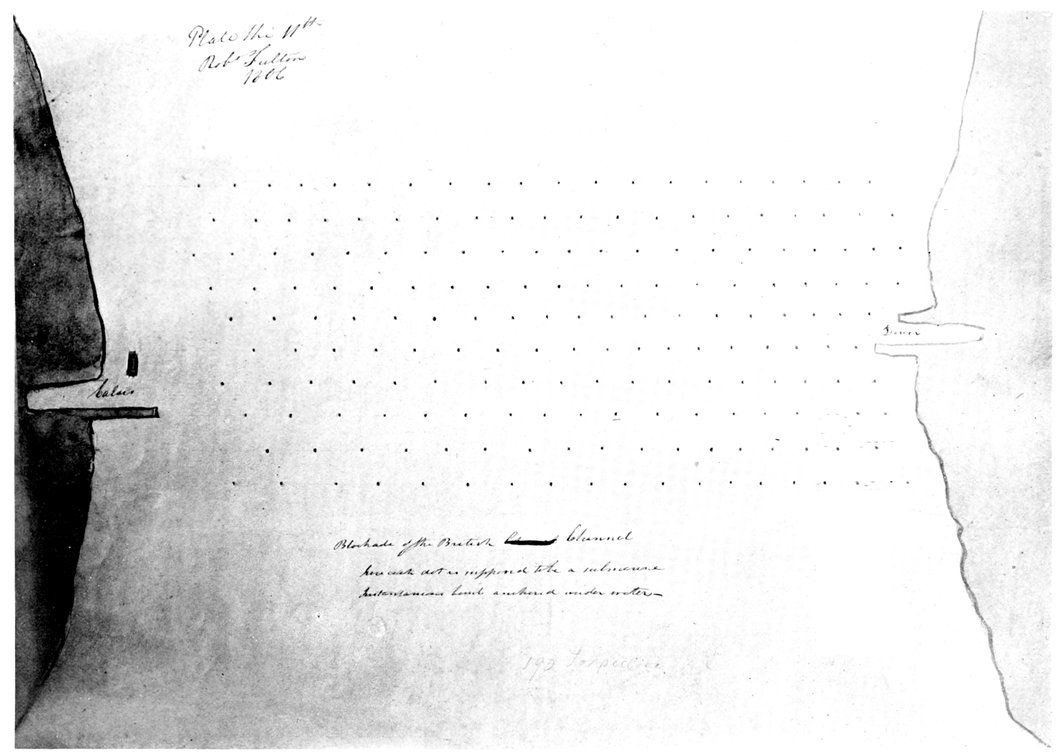 Plate the 11th
Robt Fulton
1806
Calais
Dover
Blockade of the British Channel
here each dot is supposed to be a submarine
Instantaneous bomb anchored under water —
Torpedoes